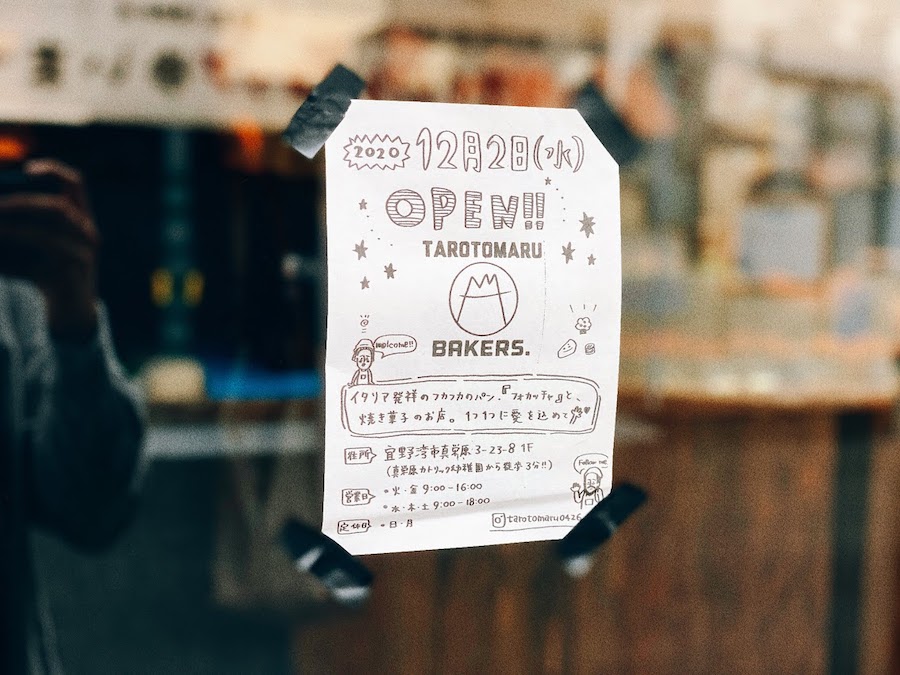 2020 12月2日(水)
OPEN!!
TAROTOMARU
BAKERS.
welcome!!
イタリア発祥のフカフカのパン.『フォカッチャ』と、
焼き菓子のお店。1つ1つに愛を込めて
住所 宜野湾市真栄原 3-23-8 1F
(真栄原カトリック幼稚園から徒歩3分!!)
Follow me
営業日 ・火・金 9:00-16:00
・水・木・土 9:00-18:00
定休日 ・日・月
tarotomaru0426